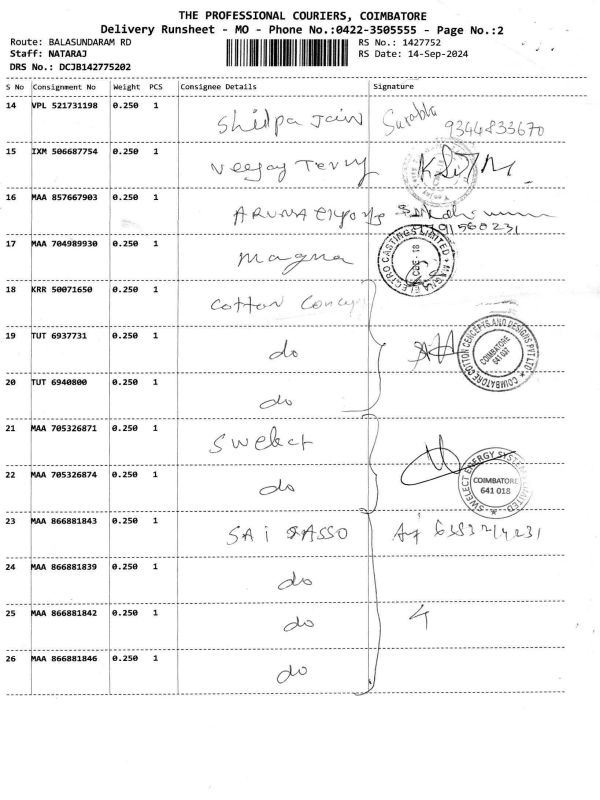 THE PROFESSIONAL COURIERS, COIMBATORE
Delivery Runsheet - MO - Phone No.:0422-3505555 - Page No.:2
Route: BALASUNDARAM RD
RS No.: 1427752
Staff: NATARAJ
RS Date: 14-Sep-2024
DRS No.: DCJB142775202
S No Consignment No Weight PCS Consignee Details Signature
14 VPL 521731198 0.250 1 Shilpa Jain 9344833670
15 IXM 506687754 0.250 1 Veejay Terry
16 MAA 857667903 0.250 1 ARUNA
17 MAA 704989930 0.250 1 Magna
MAGNA ELECTRO CASTINGS LIMITED
18 KRR 50071650 0.250 1 Cotton Concep
19 TUT 6937731 0.250 1 do
COIMBATORE COTTON CONCEPTS AND DESIGNS PVT LTD
COIMBATORE
20 TUT 6940800 0.250 1 do
21 MAA 705326871 0.250 1 Swelect
22 MAA 705326874 0.250 1 do
SWELECT ENERGY SYSTEMS LIMITED
COIMBATORE
641 018
23 MAA 866881843 0.250 1 SAI
24 MAA 866881839 0.250 1 do
25 MAA 866881842 0.250 1 do 4
26 MAA 866881846 0.250 1 do